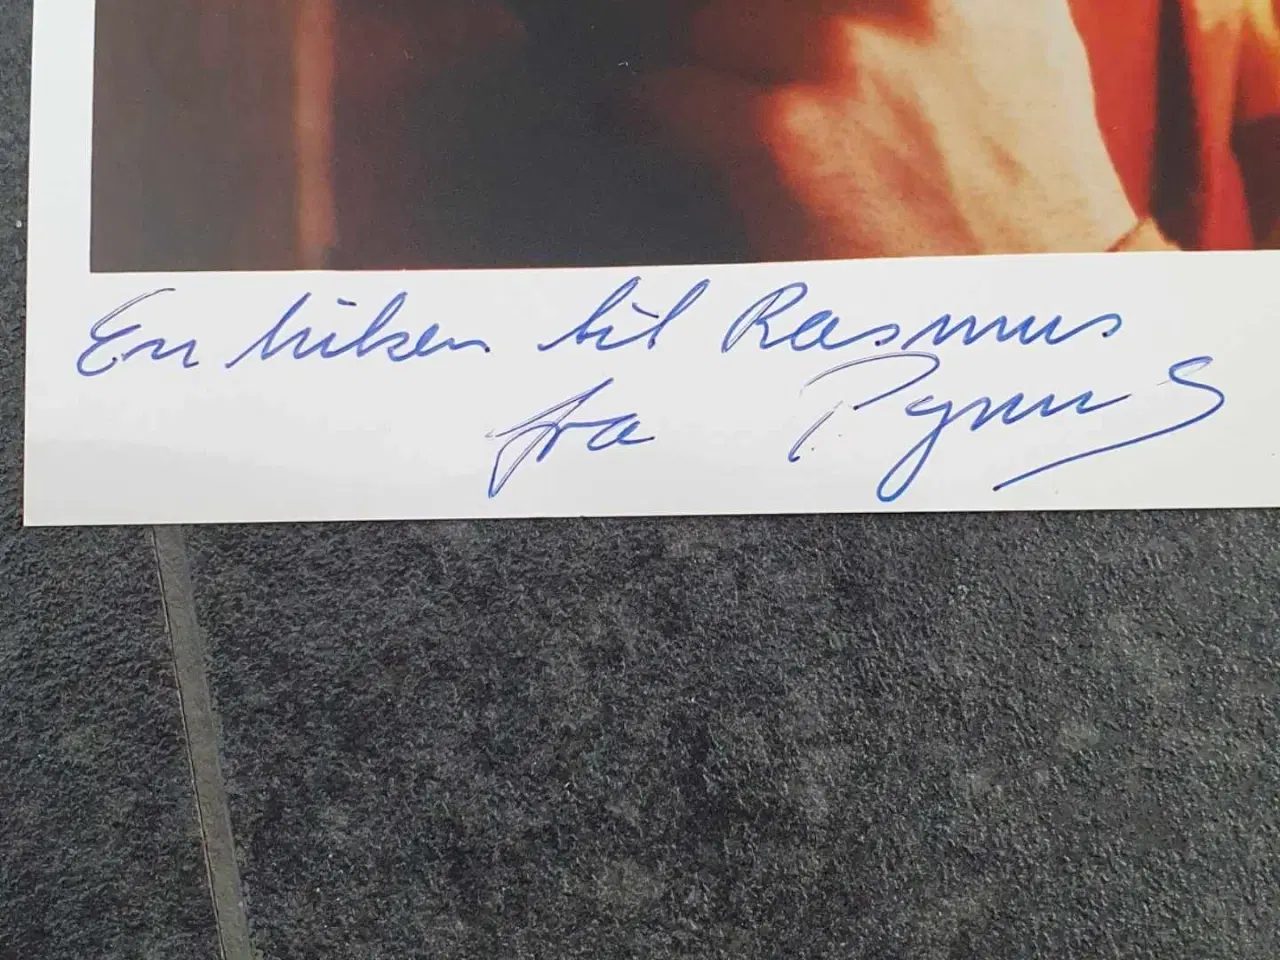 En hilsen til Rasmus
fra Pyrus